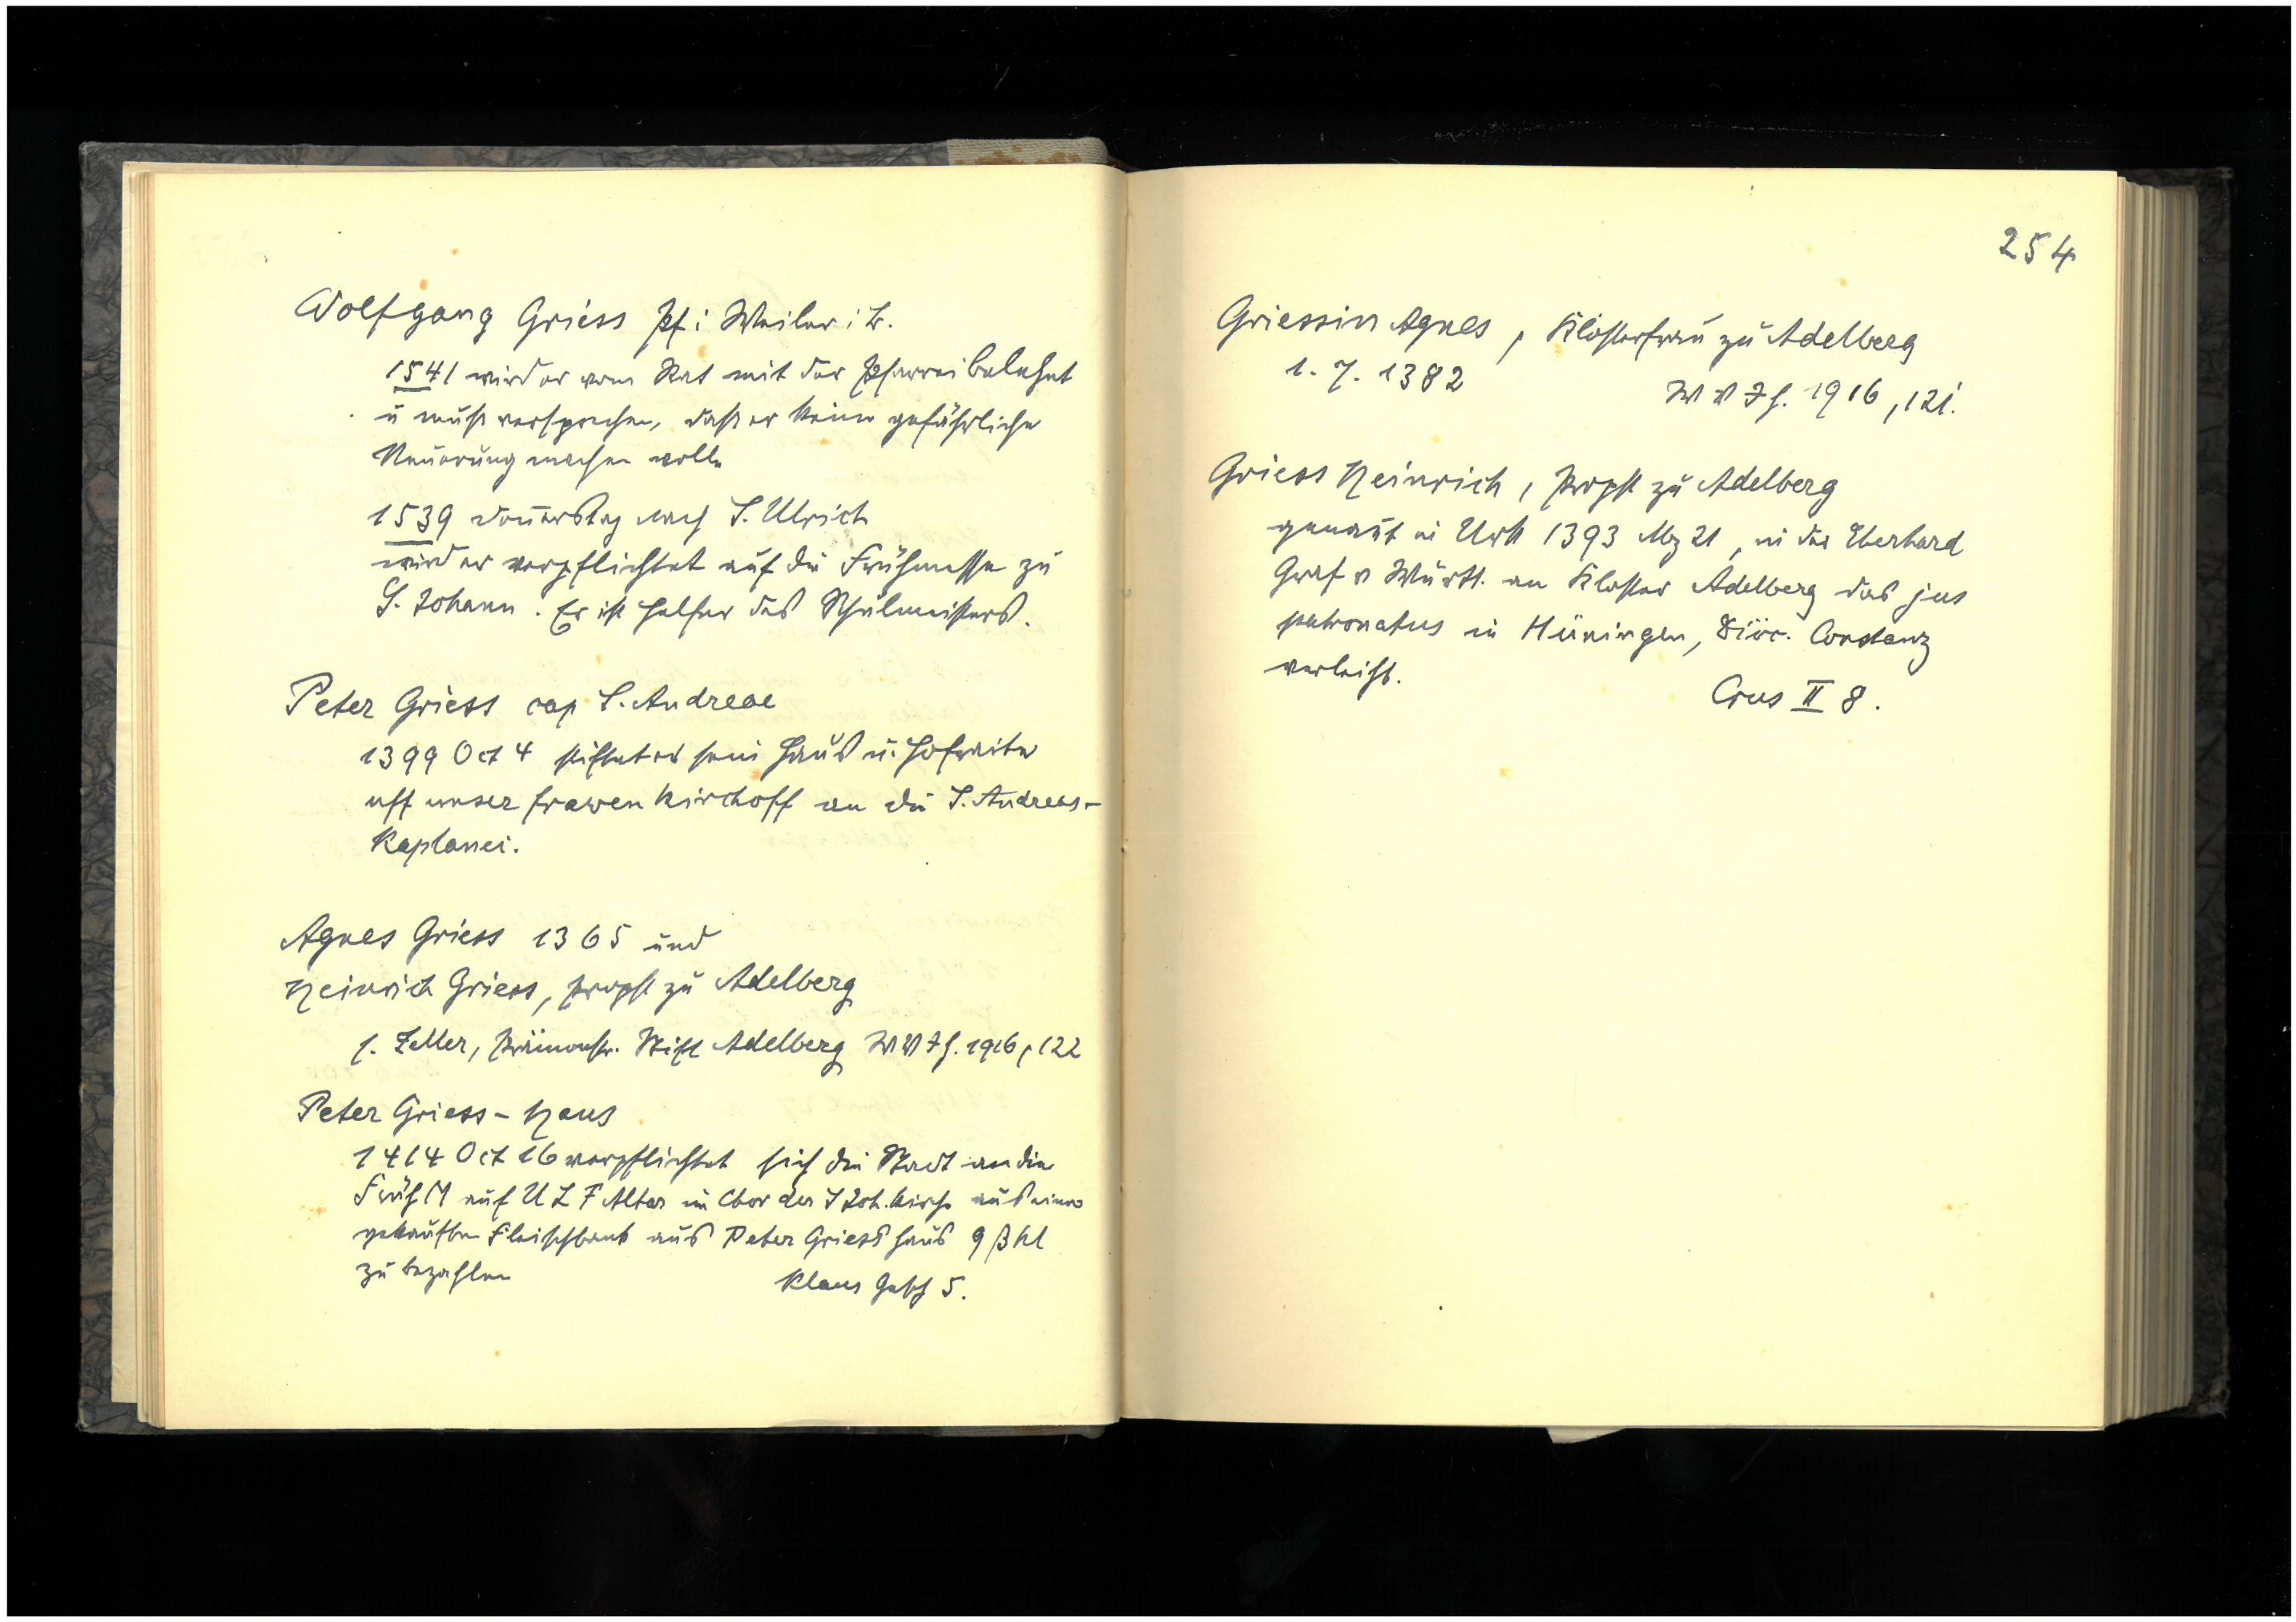 Wolfgang Griess Pf i Weiler i B.
1541 wird er vom Rat mit der Pfarrei belehnt
u muß versprechen, daß er keine gefährliche
Neuerung machen wolle
1539 Donnerstag nach S. Ulrich
wird er verpflichtet auf die Frühmesse zu
S. Johann. Er ist Helfer des Schulmeisters.
Peter Griess cap S. Andreae
1399 Oct 4 stiftet er sein Haus u. Hofraite
uff unser frawen kirchoff an die S. Andreas-
Kaplanei.
Agnes Griess 1365 und
Heinrich Griess, Propst zu Adelberg
s. Zeller, Prämonstr. Stift Adelberg WVJH. 1916, 122
Peter Griess - Haus
1414 Oct 16 verpflichtet sich die Stadt an die
FrühM auf U L F Altar im Chor der S Joh. kirche aus einer
gekauften Fleischbank aus Peter Griess Haus 9 ß hl
zu bezahlen
Klaus Gesch 5.
254
Griessin Agnes, Klosterfrau zu Adelberg
1. 7. 1382
WVJH. 1916, 121.
Griess Heinrich, Propst zu Adelberg
genannt in Urk 1393 Mz 21, in der Eberhard
Graf v Württ. an Kloster Adelberg das jus
patronatus in Hüningen, Diöc. Constanz
verleiht.
Crus II 8.